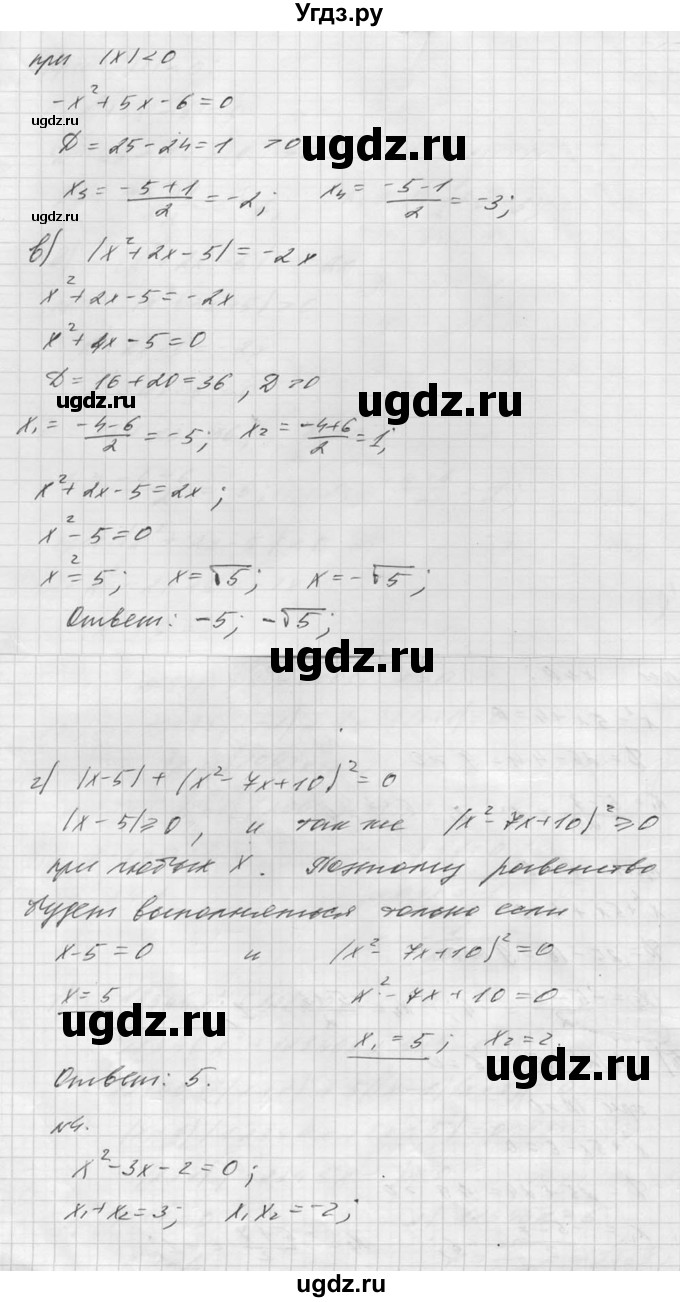 Угдз.ру
при |x|<0
-x²+5x-6=0
ugdz.ru
Д=25-24=1 >0
ugdz.ru
x₃=(-5+1)/2=-2; x₄=(-5-1)/2=-3;
ugdz.ru
в) |x²+2x-5|=-2x
x²+2x-5=-2x
x²+4x-5=0
Д=16+20=36, Д>0
ugdz.ru
ugdz.ru
x₁=(-4-6)/2=-5; x₂=(-4+6)/2=1;
x²+2x-5=2x;
x²-5=0
x²=5; x=√5; x=-√5;
Ответ: -5; -√5;
ugdz.ru
г) |x-5|+(x²-7x+10)²=0
|x-5|≥0, и так же (x²-7x+10)²≥0
при любых x. Поэтому равенство
будет выполняться только если
x-5=0 и (x²-7x+10)²=0
x=5 x²-7x+10=0
ugdz.ru
x₁=5; x₂=2.
ugdz.ru
Ответ: 5.
№4.
x²-3x-2=0;
x₁+x₂=3; x₁x₂=-2;
ugdz.ru